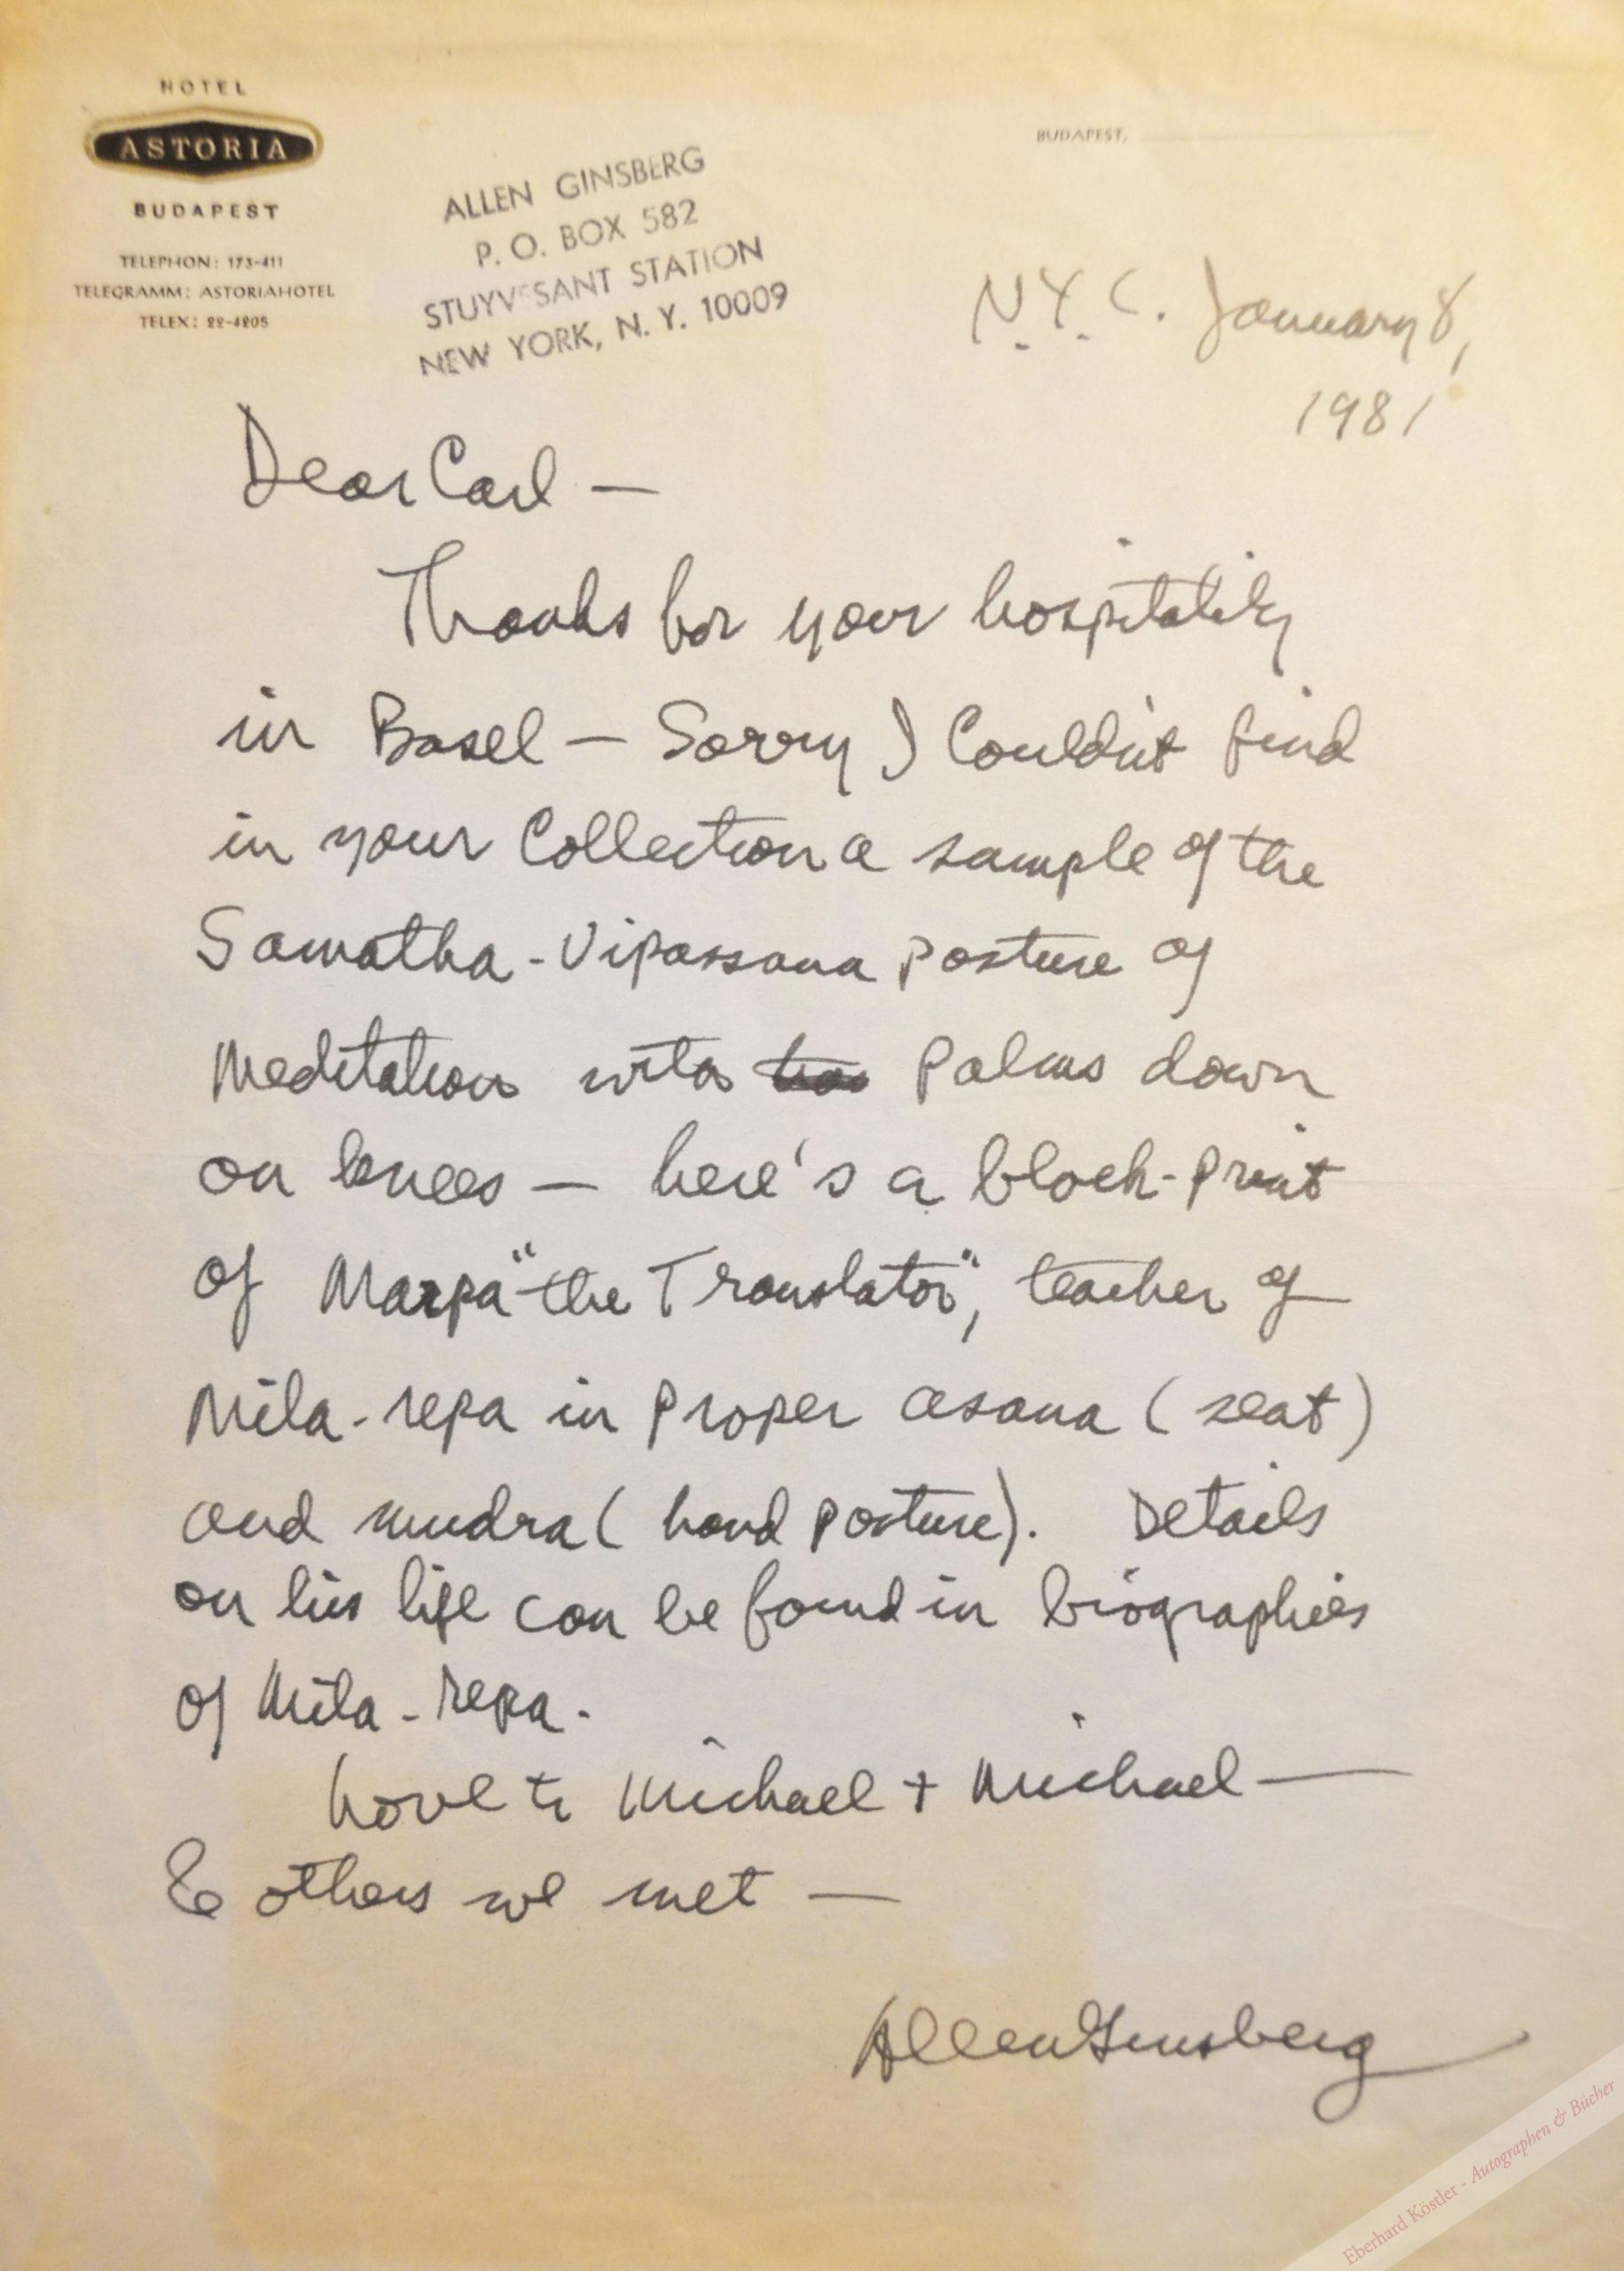 HOTEL
ASTORIA
BUDAPEST
TELEPHON: 173-411
TELEGRAMM: ASTORIAHOTEL
TELEX: 22-4205
BUDAPEST,
ALLEN GINSBERG
P. O. BOX 582
STUYVESANT STATION
NEW YORK, N. Y. 10009
N.Y.C. January 8,
1981
Dear Carl —
Thanks for your hospitality
in Basel — Sorry I Couldn't find
in your Collection a sample of the
Samatha-Vipassana posture of
Meditation with Palms down
on knees — here's a block-print
of Marpa "the Translator", teacher of
Mila-repa in proper asana (seat)
and mudra (hand posture). Details
on his life can be found in biographies
of Mila-repa.
Love to Michael + Michael —
& others we met —
Allen Ginsberg
Eberhard Köstler - Autographen & Bücher